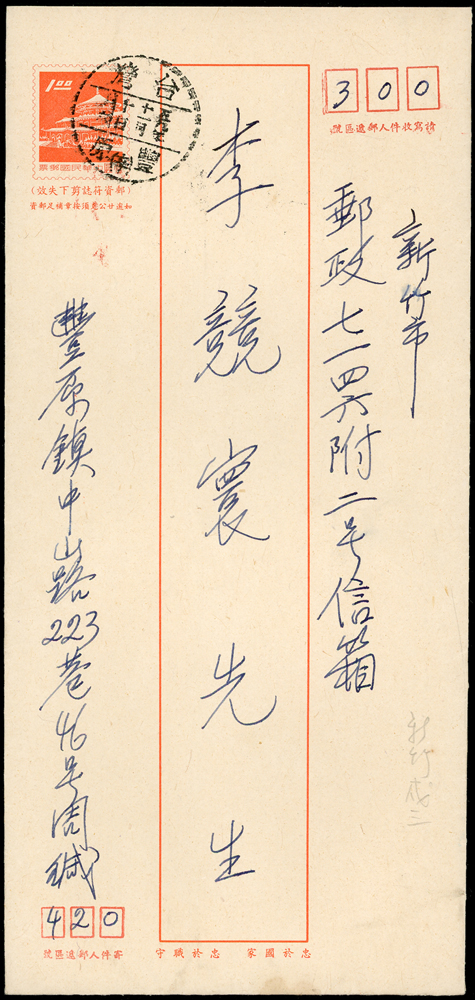 300
請寫收件人郵遞區號
新竹市
郵政七一四六附二号信箱
李競寰先生
1.00
中華民國郵票
台灣
豐原
(郵資符誌剪下失效)
如遇廿公應須按章補足郵資
豐原鎮中山路223巷46号周緘
420
寄件人郵遞區號
忠於國家 忠於職守
新竹戍三